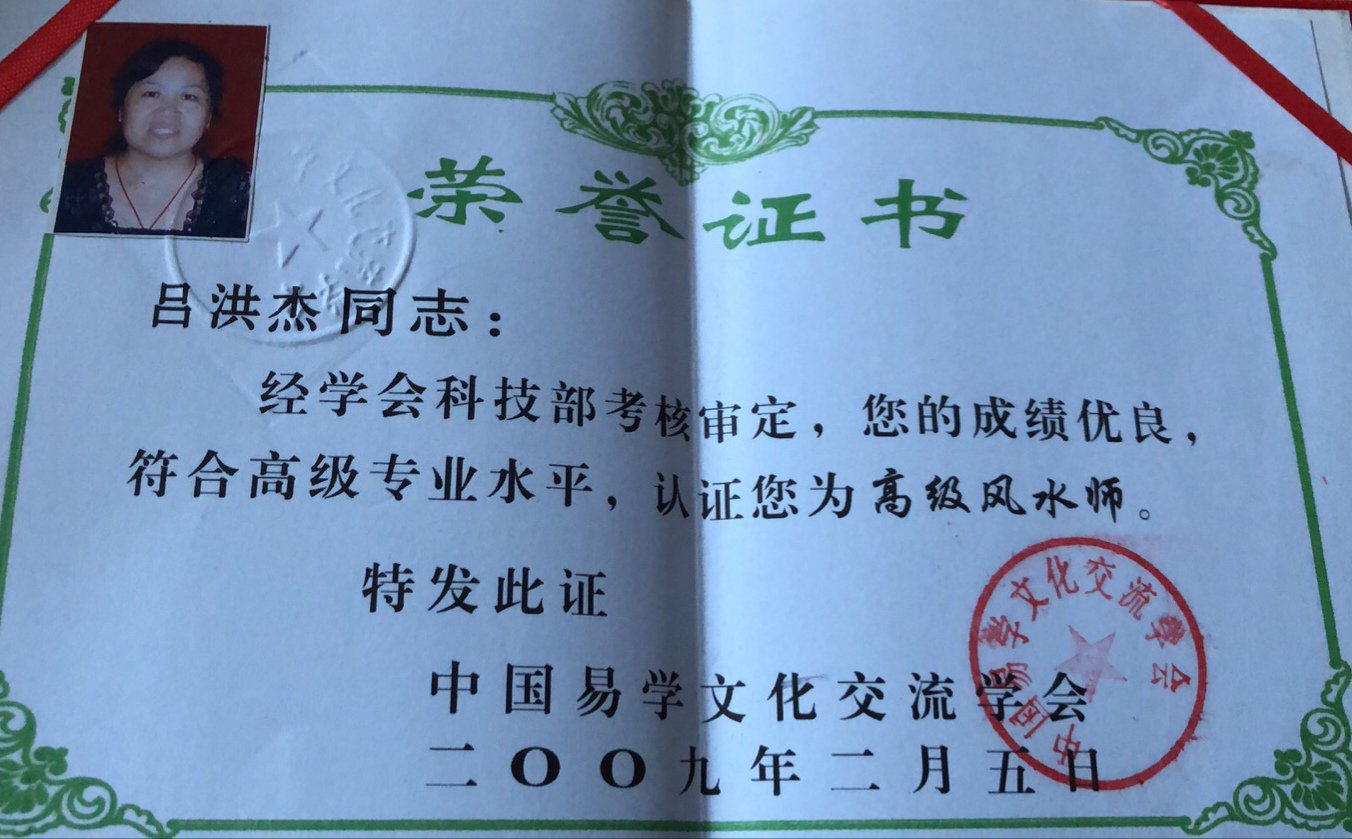 荣誉证书
吕洪杰同志：
经学会科技部考核审定，您的成绩优良，
符合高级专业水平，认证您为高级风水师。
特发此证
中国易学文化交流学会
二〇〇九年二月五日
中国易学文化交流学会